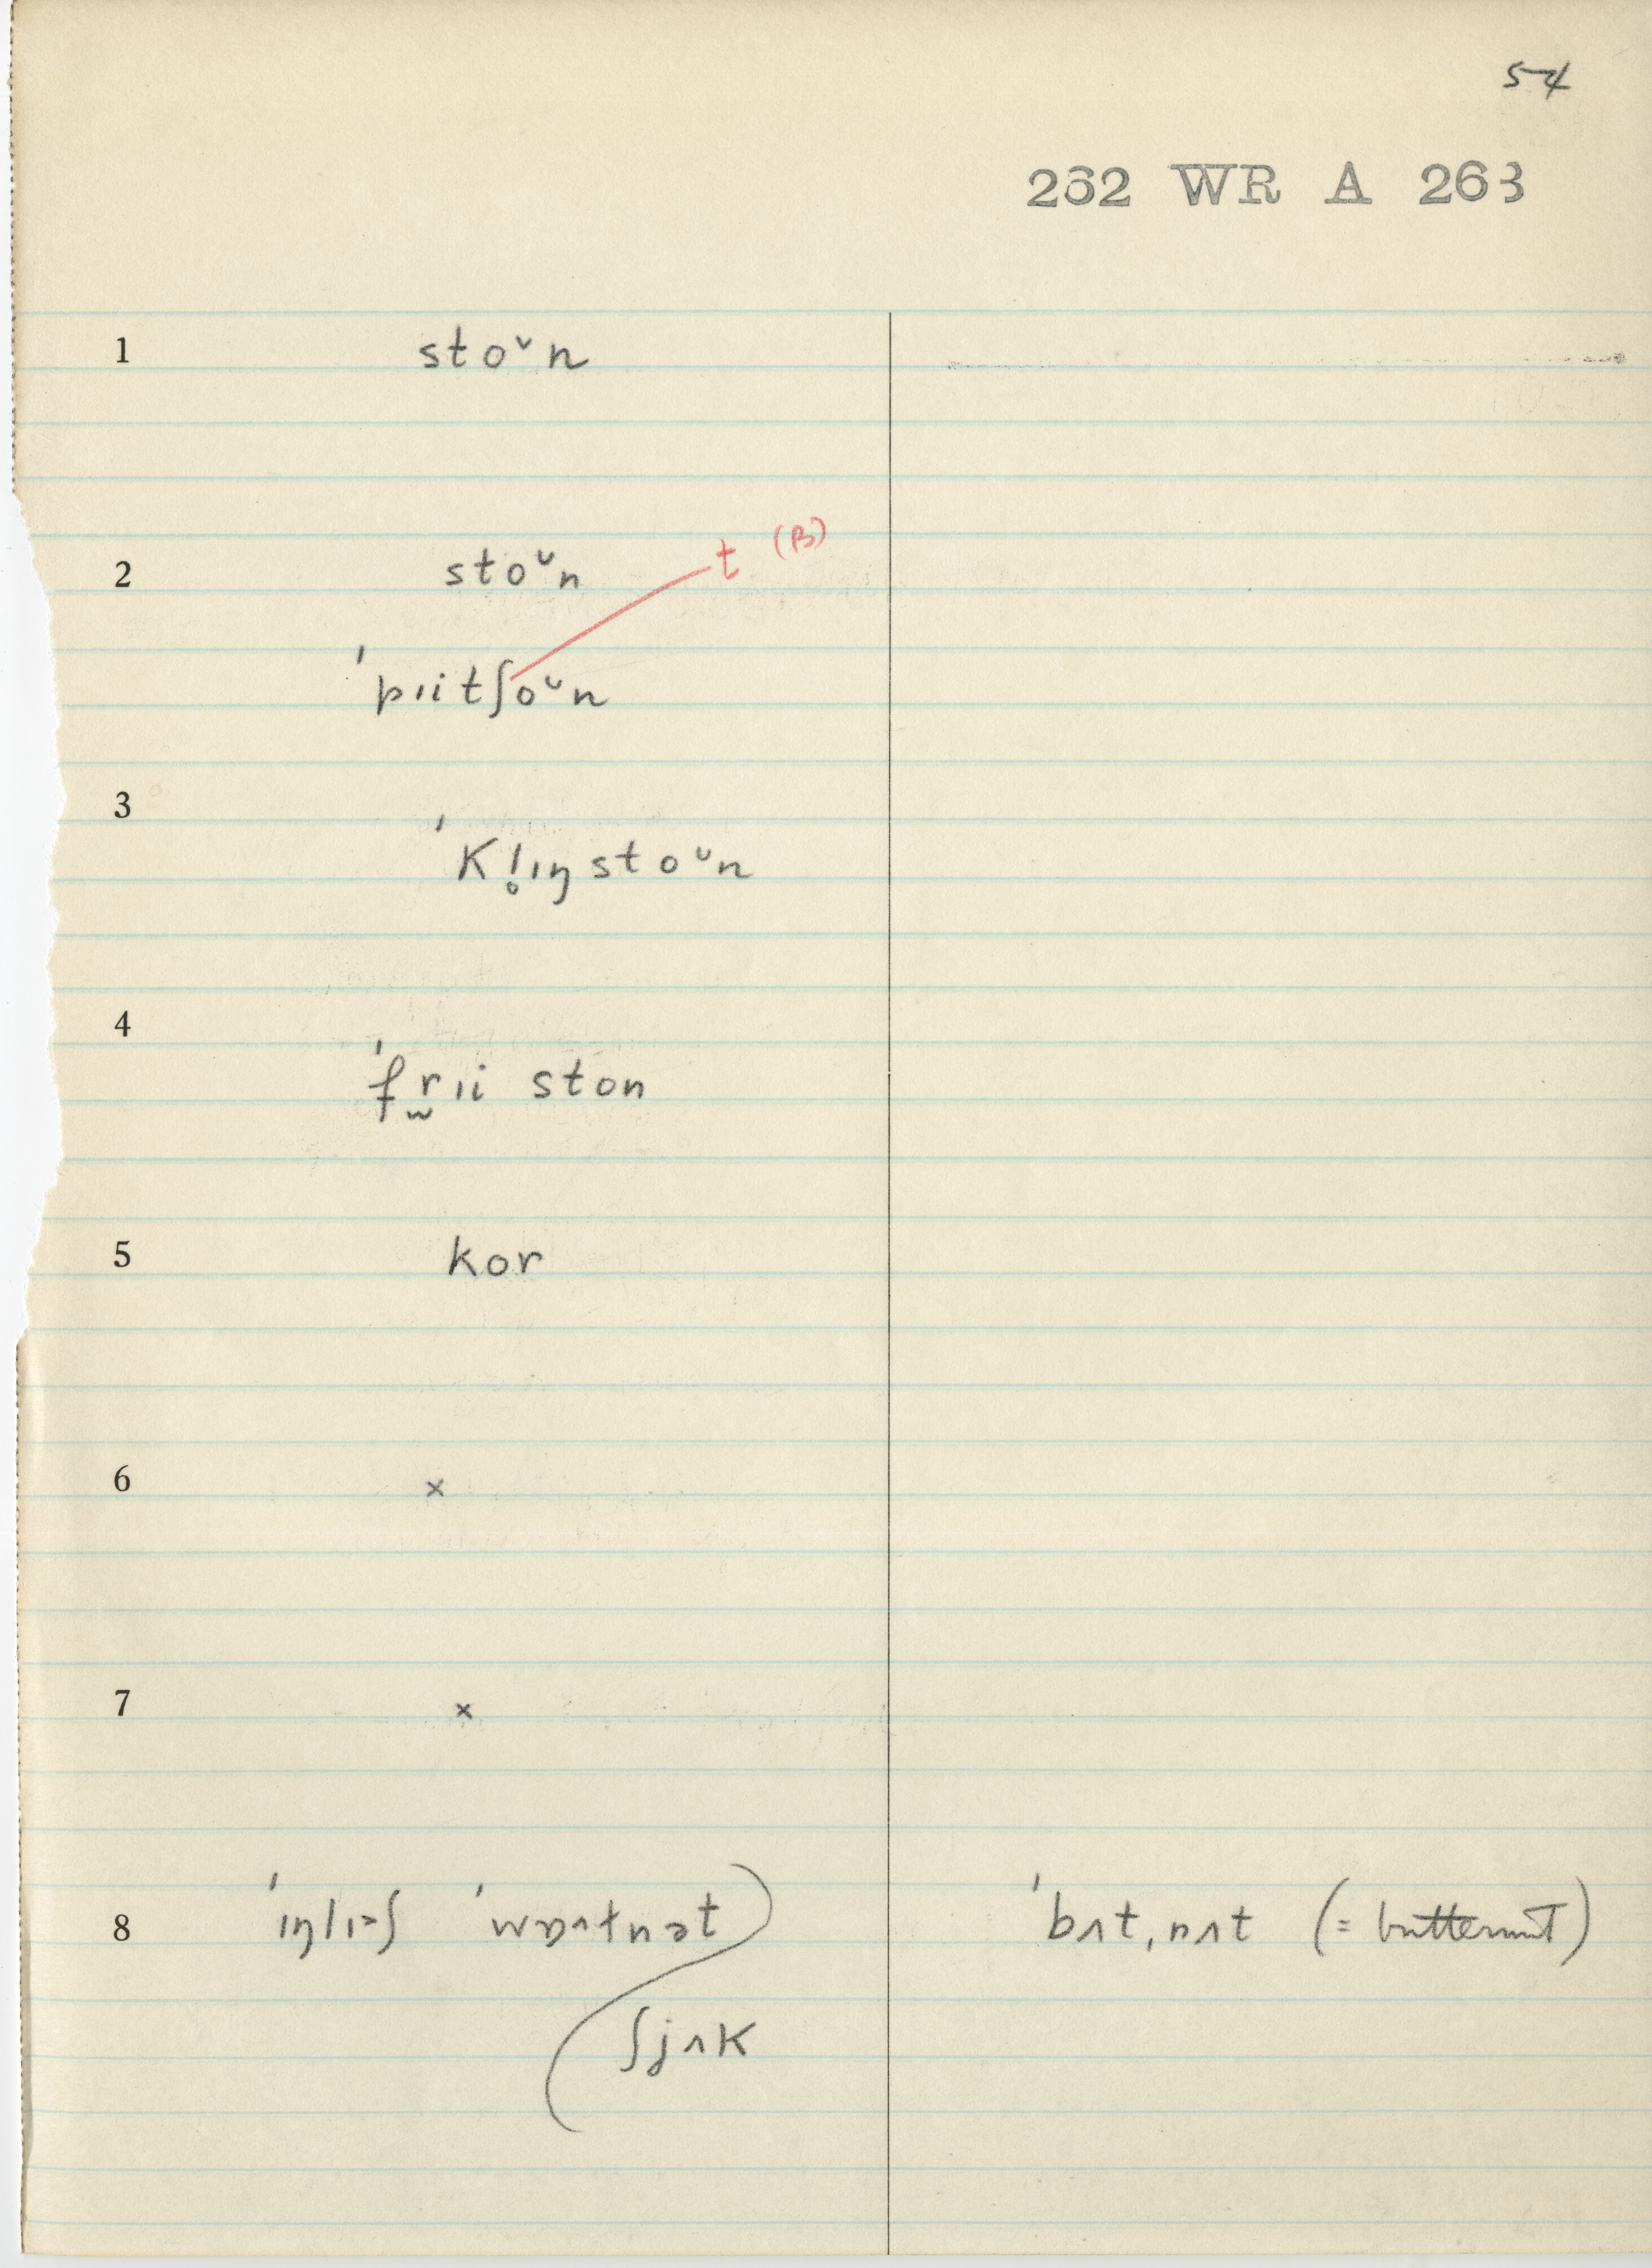 54
262 WR A 263
1 stoᴜn
2 stoᴜn
t (B)
ˈpɪitʃoᴜn
3
ˈkl̥ɪŋstoᴜn
4
ˈfrɪi ston
5 kor
6 ×
7 ×
8 ˈɪŋlɪ˃ʃ ˈwɒ˄tnət ˈbʌt,nʌt (= butternut)
ʃjʌk